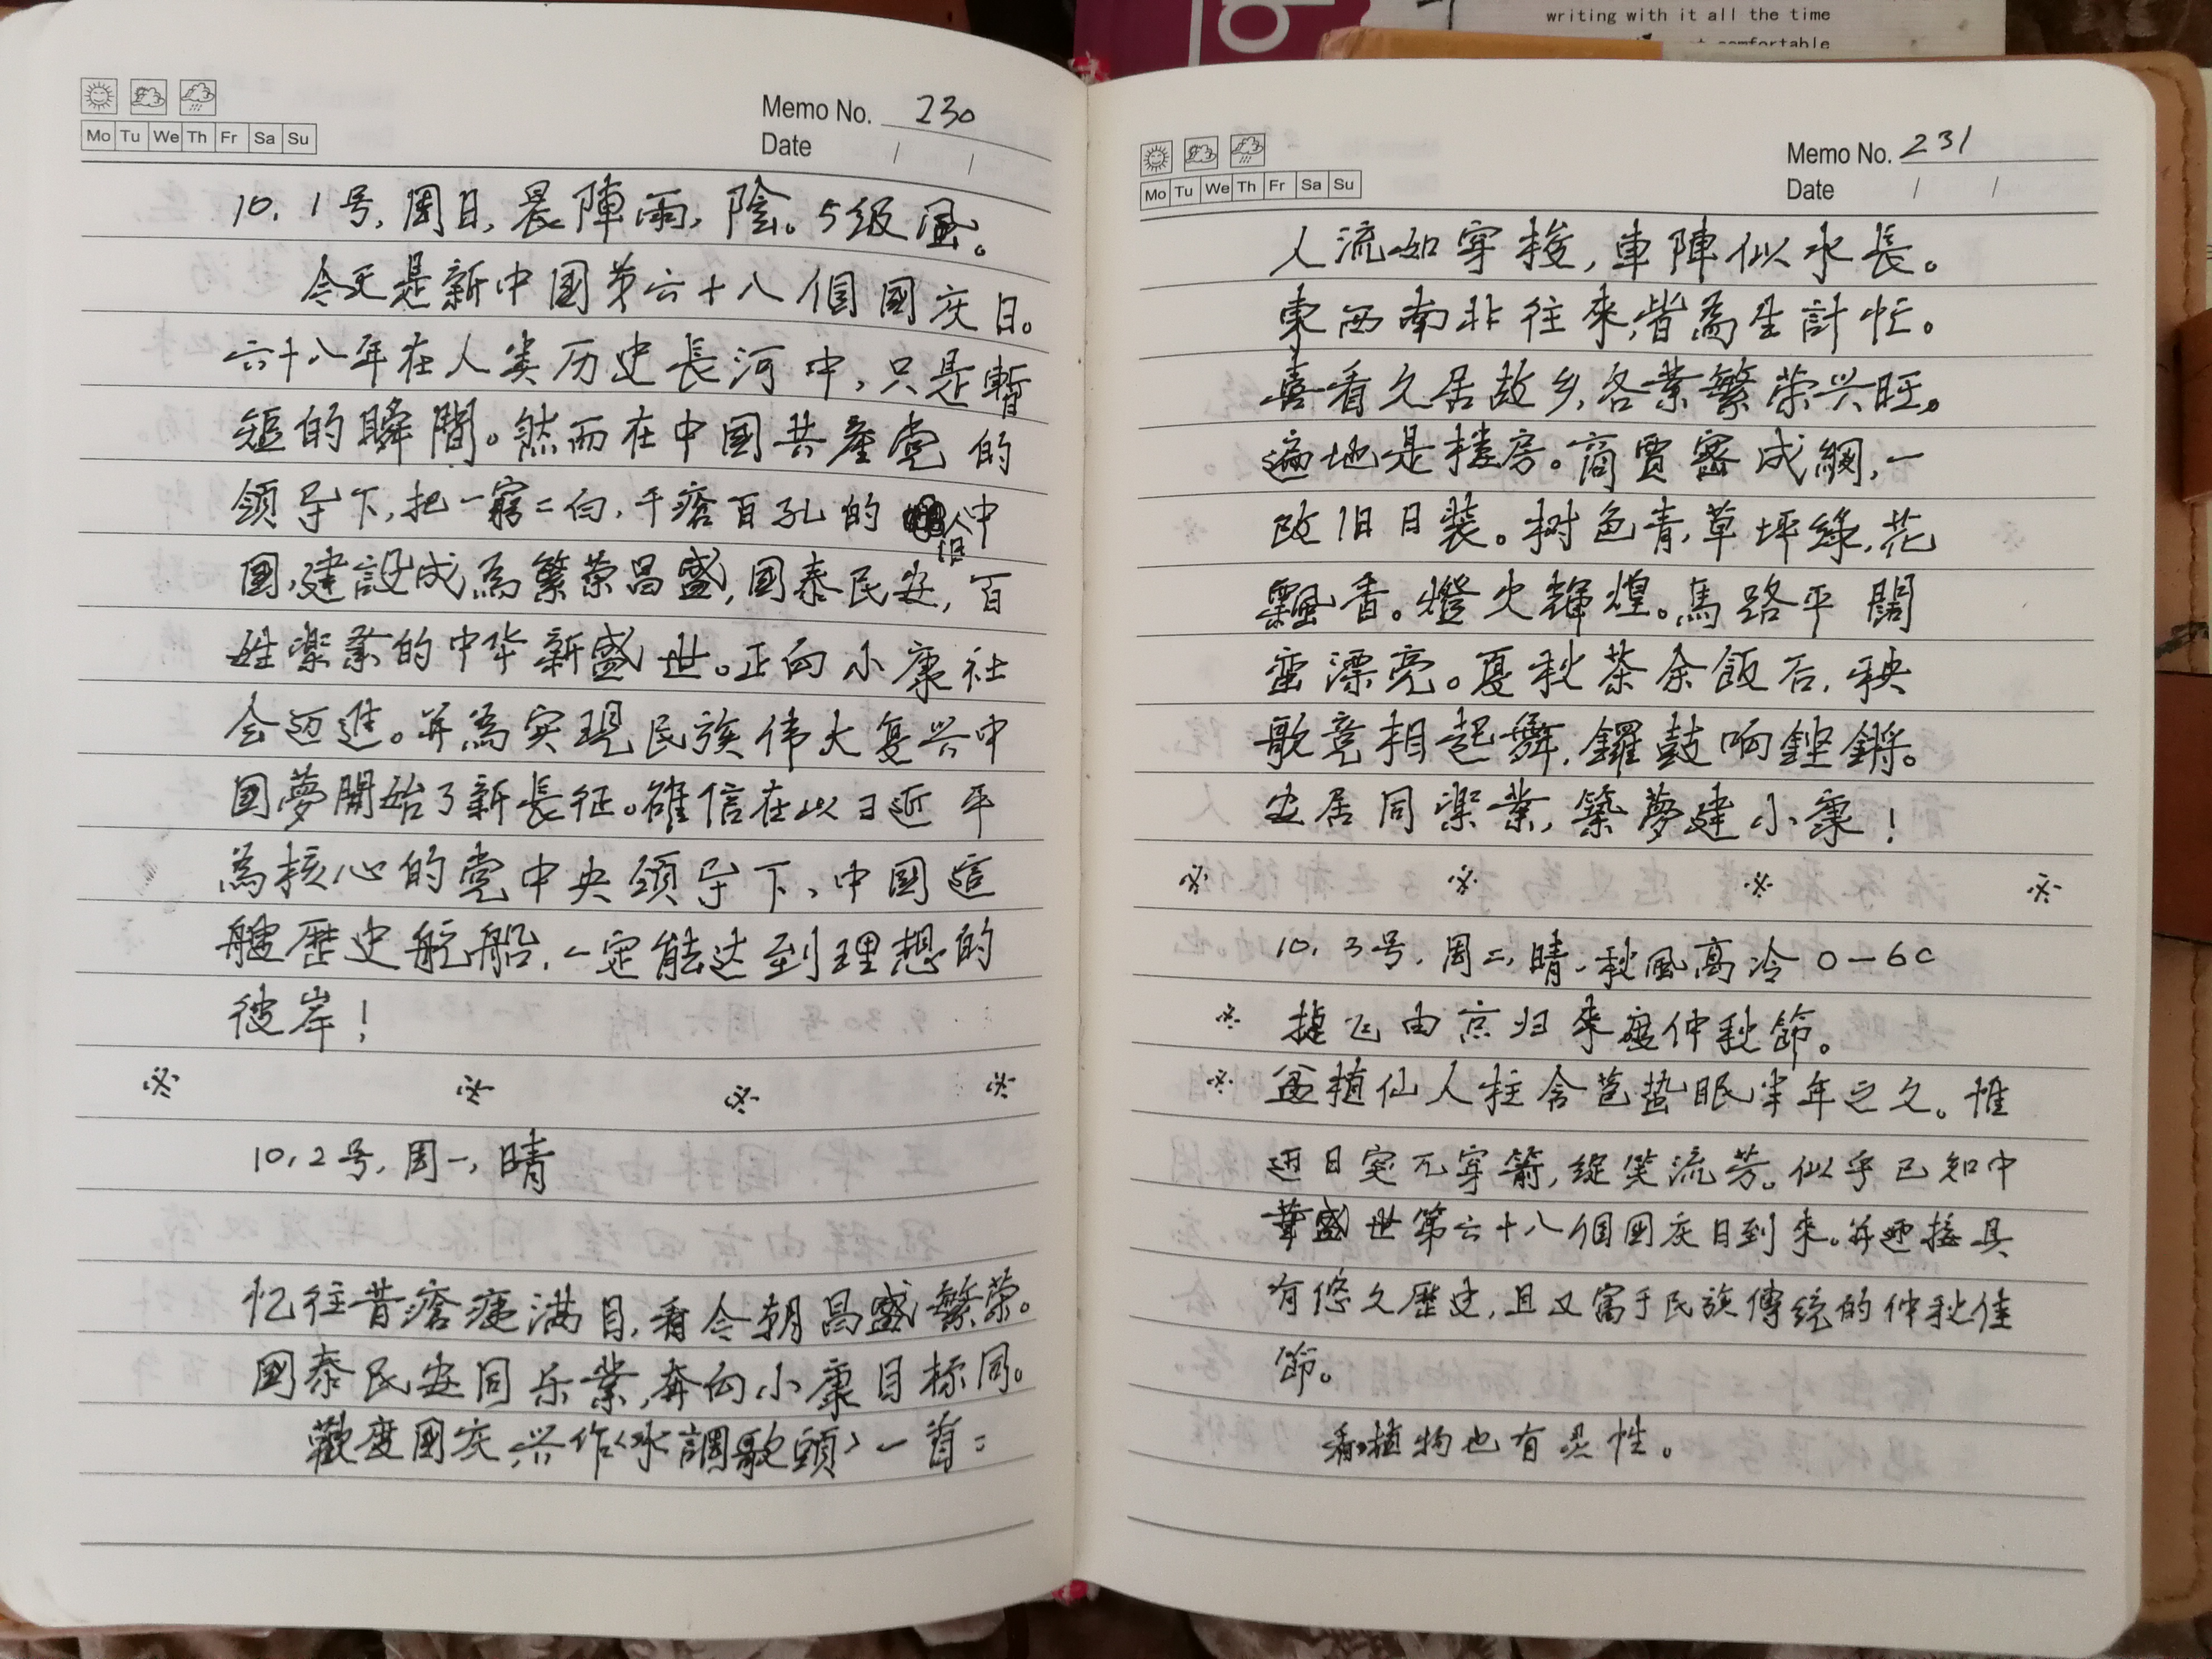 writing with it all the time
comfortable
Mo Tu We Th Fr Sa Su
Memo No. 230
Date / /
10.1号,周日,晨陣雨,陰。5级風。
今天是新中國第六十八個國庆日。
六十八年在人类历史長河中,只是暫
短的瞬間。然而在中國共產党的
領导下,把一窮二白,千瘡百孔的旧中
國,建設成為繁荣昌盛,國泰民安,百
姓樂業的中华新盛世。正向小康社
会迈進。并為实現民族伟大复兴中
國夢開始了新長征。確信在以习近平
為核心的党中央領导下,中國這
艘歷史航船,一定能达到理想的
彼岸!
※ ※ ※ ※
10.2号,周一,晴
忆往昔瘡痍满目,看今朝昌盛繁荣。
國泰民安同乐業,奔向小康目标同。
歡度國庆兴作<水調歌頭>一首:
Mo Tu We Th Fr Sa Su
Memo No. 231
Date / /
人流如穿梭,車陣似水長。
東西南北往來,皆為生計忙。
喜看久居故乡,各業繁荣兴旺。
遍地是楼房。商賈密成網,一
改旧日装。树色青,草坪綠,花
飄香。燈火輝煌。馬路平闊
蛮漂亮。夏秋茶余飯后,秧
歌竞相起舞,鑼鼓响鏗鏘。
安居同樂業,築夢建小康!
※ ※ ※ ※
10.3号,周二,晴,秋風高冷0-6C
※ 捷飞由京归來度仲秋節。
※ 盆植仙人柱含苞蛰眠半年之久。惟
近日突兀穿箭,綻笑流芳。似乎已知中
華盛世第六十八個國庆日到来。并迎接具
有悠久歷史,且又富于民族傳統的仲秋佳
節。
看,植物也有灵性。